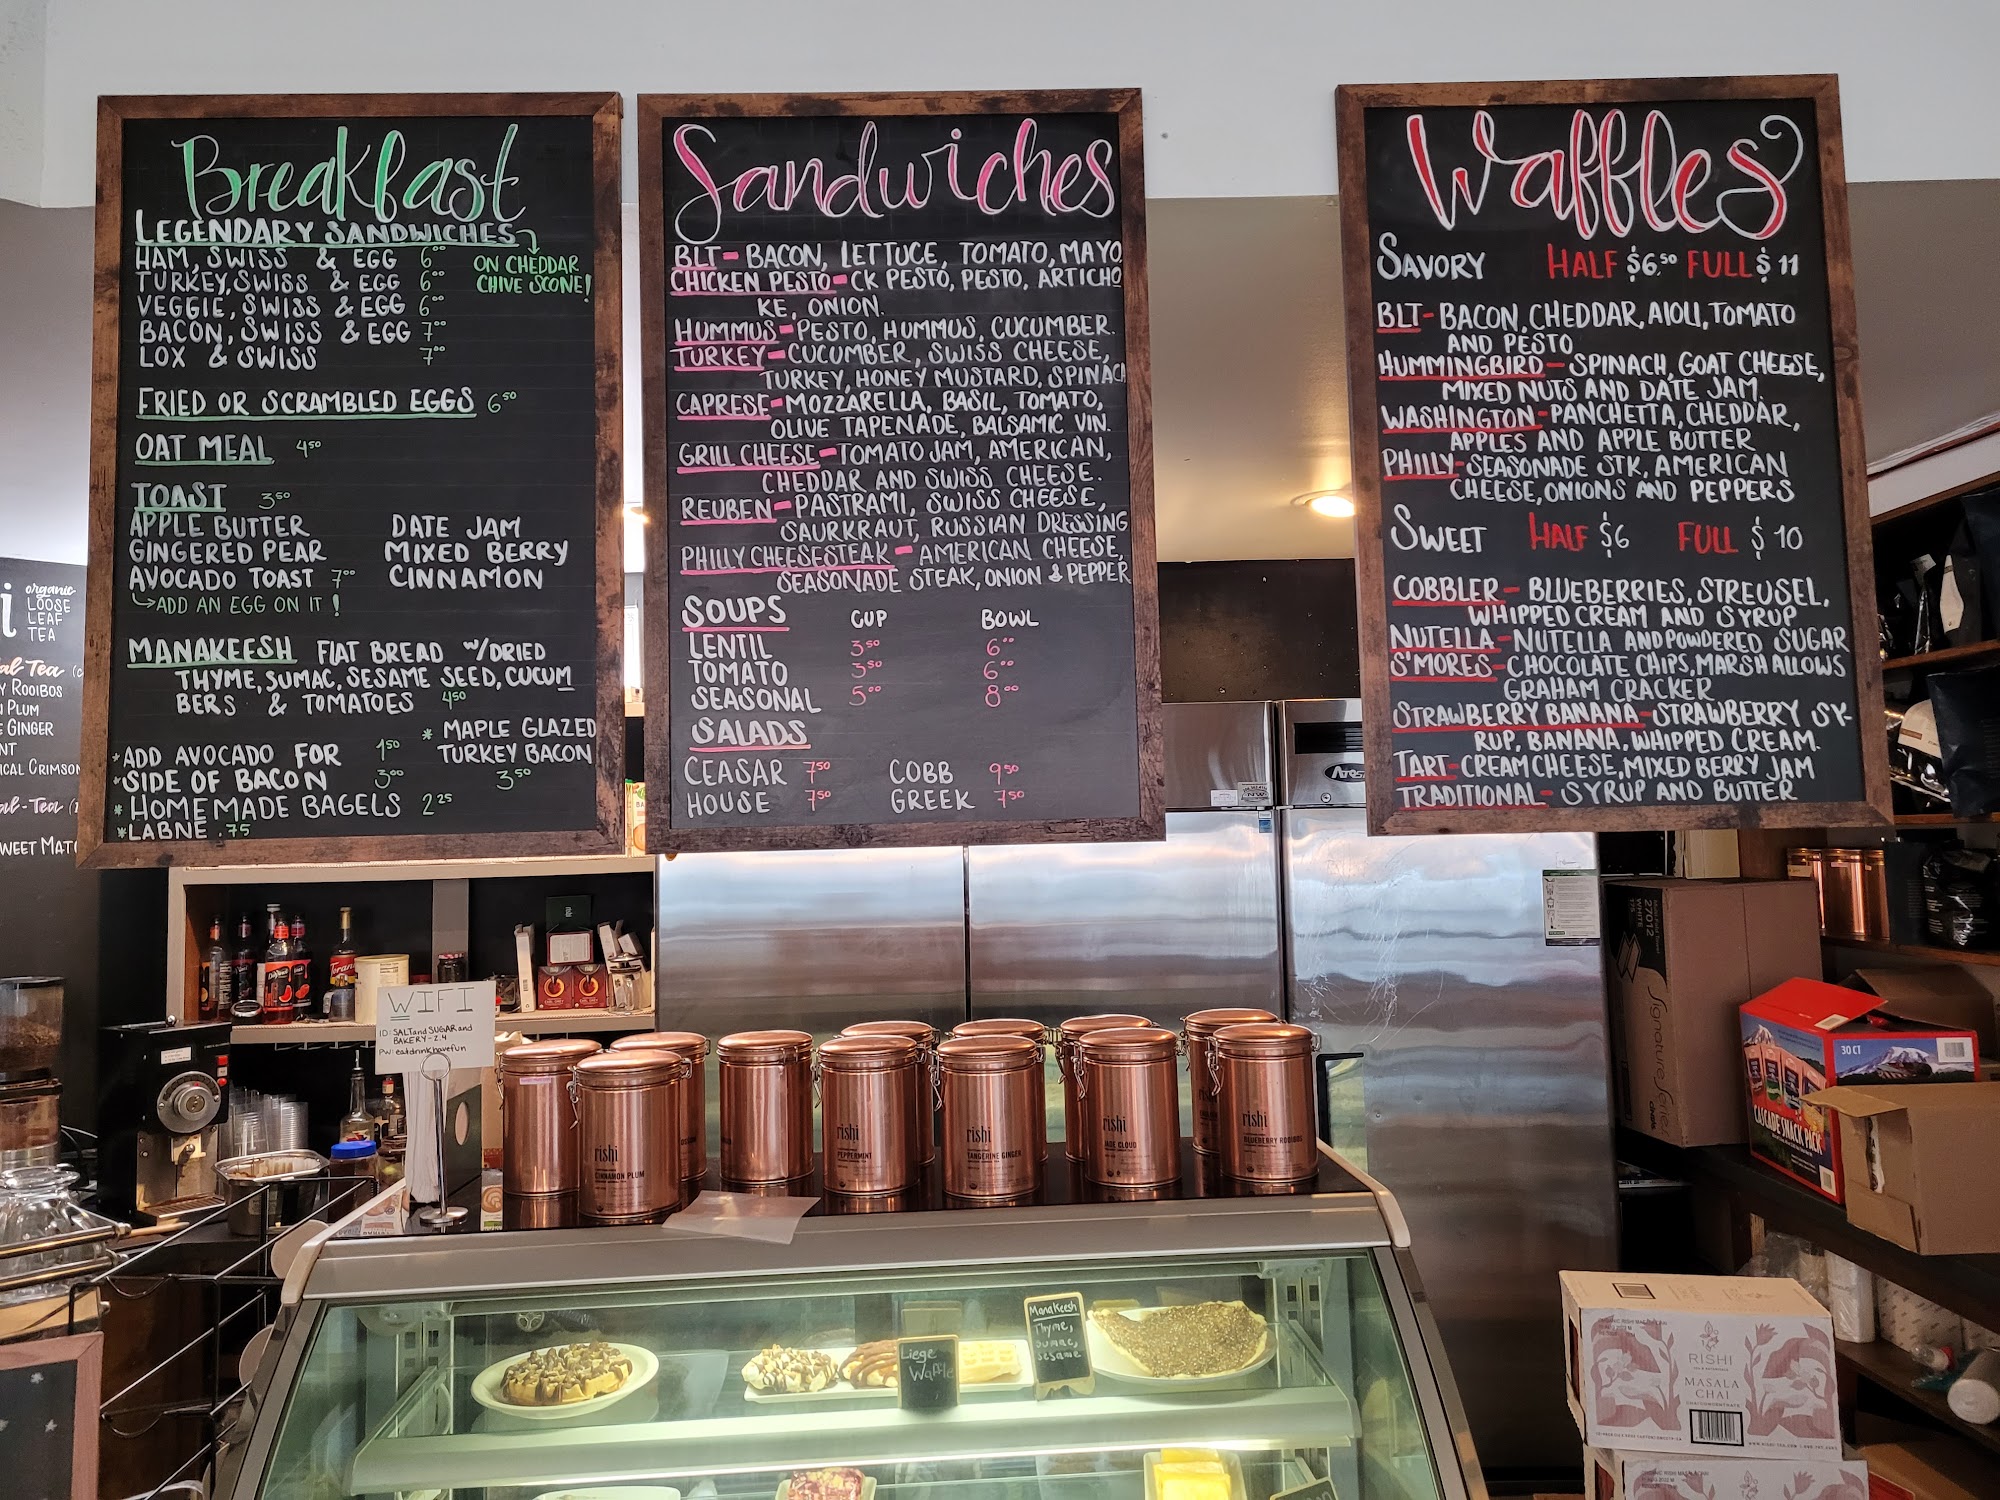 Breakfast
LEGENDARY SANDWICHES
HAM, SWISS & EGG 6.00
TURKEY, SWISS & EGG 6.00
VEGGIE, SWISS & EGG 6.00
BACON, SWISS & EGG 7.00
LOX & SWISS 7.00
ON CHEDDAR
CHIVE SCONE!
FRIED OR SCRAMBLED EGGS 6.50
OAT MEAL 4.50
TOAST 3.50
APPLE BUTTER DATE JAM
GINGERED PEAR MIXED BERRY
AVOCADO TOAST 7.00 CINNAMON
ADD AN EGG ON IT!
MANAKEESH FLAT BREAD W/DRIED
THYME, SUMAC, SESAME SEED, CUCUM
BERS & TOMATOES 4.50
*ADD AVOCADO FOR 1.50
*SIDE OF BACON 3.00
*HOMEMADE BAGELS 2.25
*LABNE .75
* MAPLE GLAZED
TURKEY BACON
3.50
Sandwiches
BLT- BACON, LETTUCE, TOMATO, MAYO
CHICKEN PESTO-CK PESTO, PESTO, ARTICHO
KE, ONION.
HUMMUS-PESTO, HUMMUS, CUCUMBER.
TURKEY-CUCUMBER, SWISS CHEESE,
TURKEY, HONEY MUSTARD, SPINACH
CAPRESE-MOZZARELLA, BASIL, TOMATO,
OLIVE TAPENADE, BALSAMIC VIN.
GRILL CHEESE-TOMATO JAM, AMERICAN,
CHEDDAR AND SWISS CHEESE.
REUBEN-PASTRAMI, SWISS CHEESE,
SAURKRAUT, RUSSIAN DRESSING
PHILLY CHEESESTEAK-AMERICAN CHEESE,
SEASONADE STEAK, ONION & PEPPER
SOUPS CUP BOWL
LENTIL 3.50 6.00
TOMATO 3.50 6.00
SEASONAL 5.00 8.00
SALADS
CEASAR 7.50 COBB 9.50
HOUSE 7.50 GREEK 7.50
Waffles
SAVORY HALF $6.50 FULL $11
BLT-BACON, CHEDDAR, AIOLI, TOMATO
AND PESTO
HUMMINGBIRD-SPINACH, GOAT CHEESE,
MIXED NUTS AND DATE JAM.
WASHINGTON-PANCHETTA, CHEDDAR,
APPLES AND APPLE BUTTER
PHILLY-SEASONADE STK, AMERICAN
CHEESE, ONIONS AND PEPPERS
SWEET HALF $6 FULL $10
COBBLER-BLUEBERRIES, STREUSEL,
WHIPPED CREAM AND SYRUP
NUTELLA-NUTELLA AND POWDERED SUGAR
S'MORES-CHOCOLATE CHIPS, MARSHALLOWS
GRAHAM CRACKER
STRAWBERRY BANANA-STRAWBERRY SY-
RUP, BANANA, WHIPPED CREAM.
TART-CREAM CHEESE, MIXED BERRY JAM
TRADITIONAL-SYRUP AND BUTTER
organic
LOOSE
LEAF
TEA
Tea
ROOIBOS
PLUM
GINGER
CRIMSON
Tea
WIFI
ID: SALTandSUGARand
BAKERY-2.4
PW: eatdrinkhavefun
rishi
CINNAMON PLUM
rishi
PEPPERMINT
rishi
TANGERINE GINGER
rishi
JADE CLOUD
rishi
BLUEBERRY ROOIBOS
Liege
Waffle
Manakeesh
Thyme,
Sumac,
Sesame
27012
WHITE
Signature Series
30 CT
CASCADE SNACK PACK
RISHI
MASALA
CHAI